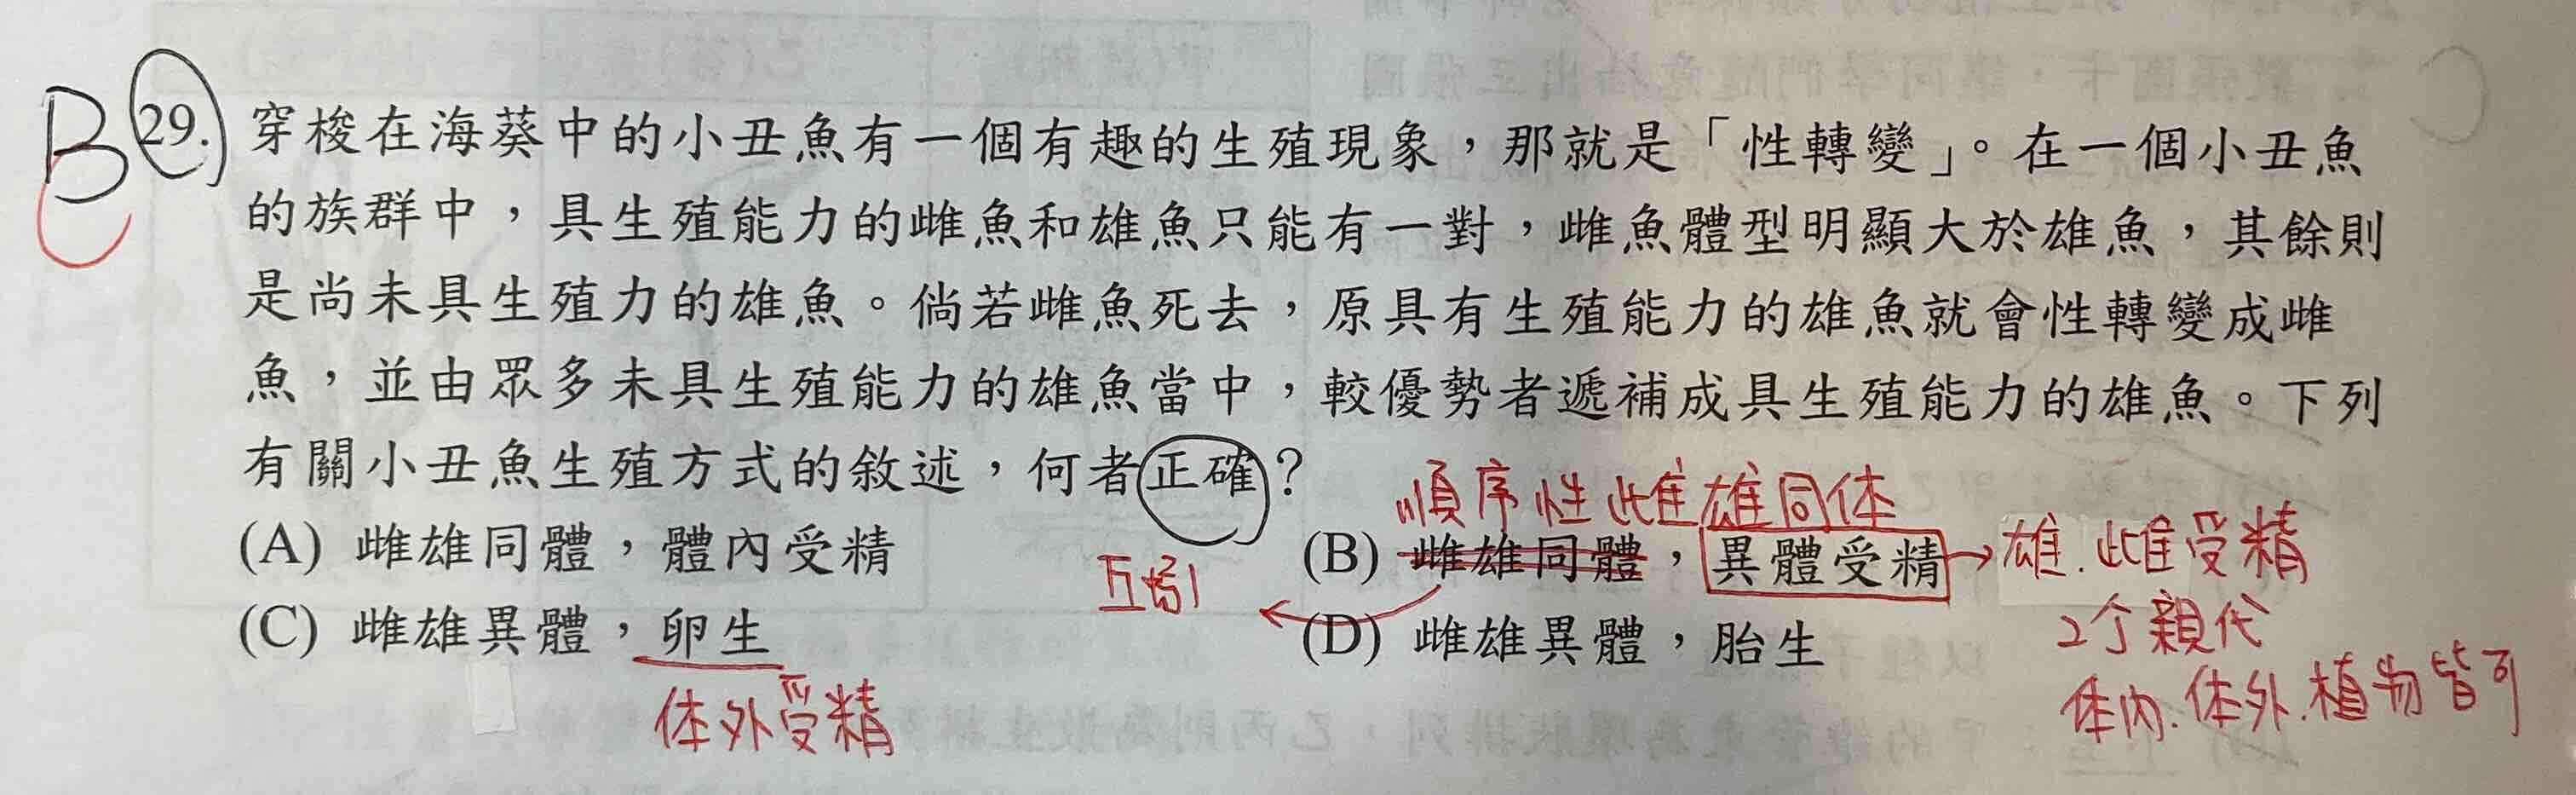 B
C
29. 穿梭在海葵中的小丑魚有一個有趣的生殖現象，那就是「性轉變」。在一個小丑魚
的族群中，具生殖能力的雌魚和雄魚只能有一對，雌魚體型明顯大於雄魚，其餘則
是尚未具生殖力的雄魚。倘若雌魚死去，原具有生殖能力的雄魚就會性轉變成雌
魚，並由眾多未具生殖能力的雄魚當中，較優勢者遞補成具生殖能力的雄魚。下列
有關小丑魚生殖方式的敘述，何者正確？
順序性雌雄同体
(A) 雌雄同體，體內受精
(B) 雌雄同體，異體受精→雄.雌受精
2个親代
体內.体外.植物皆可
(C) 雌雄異體，卵生
体外受精
(D) 雌雄異體，胎生